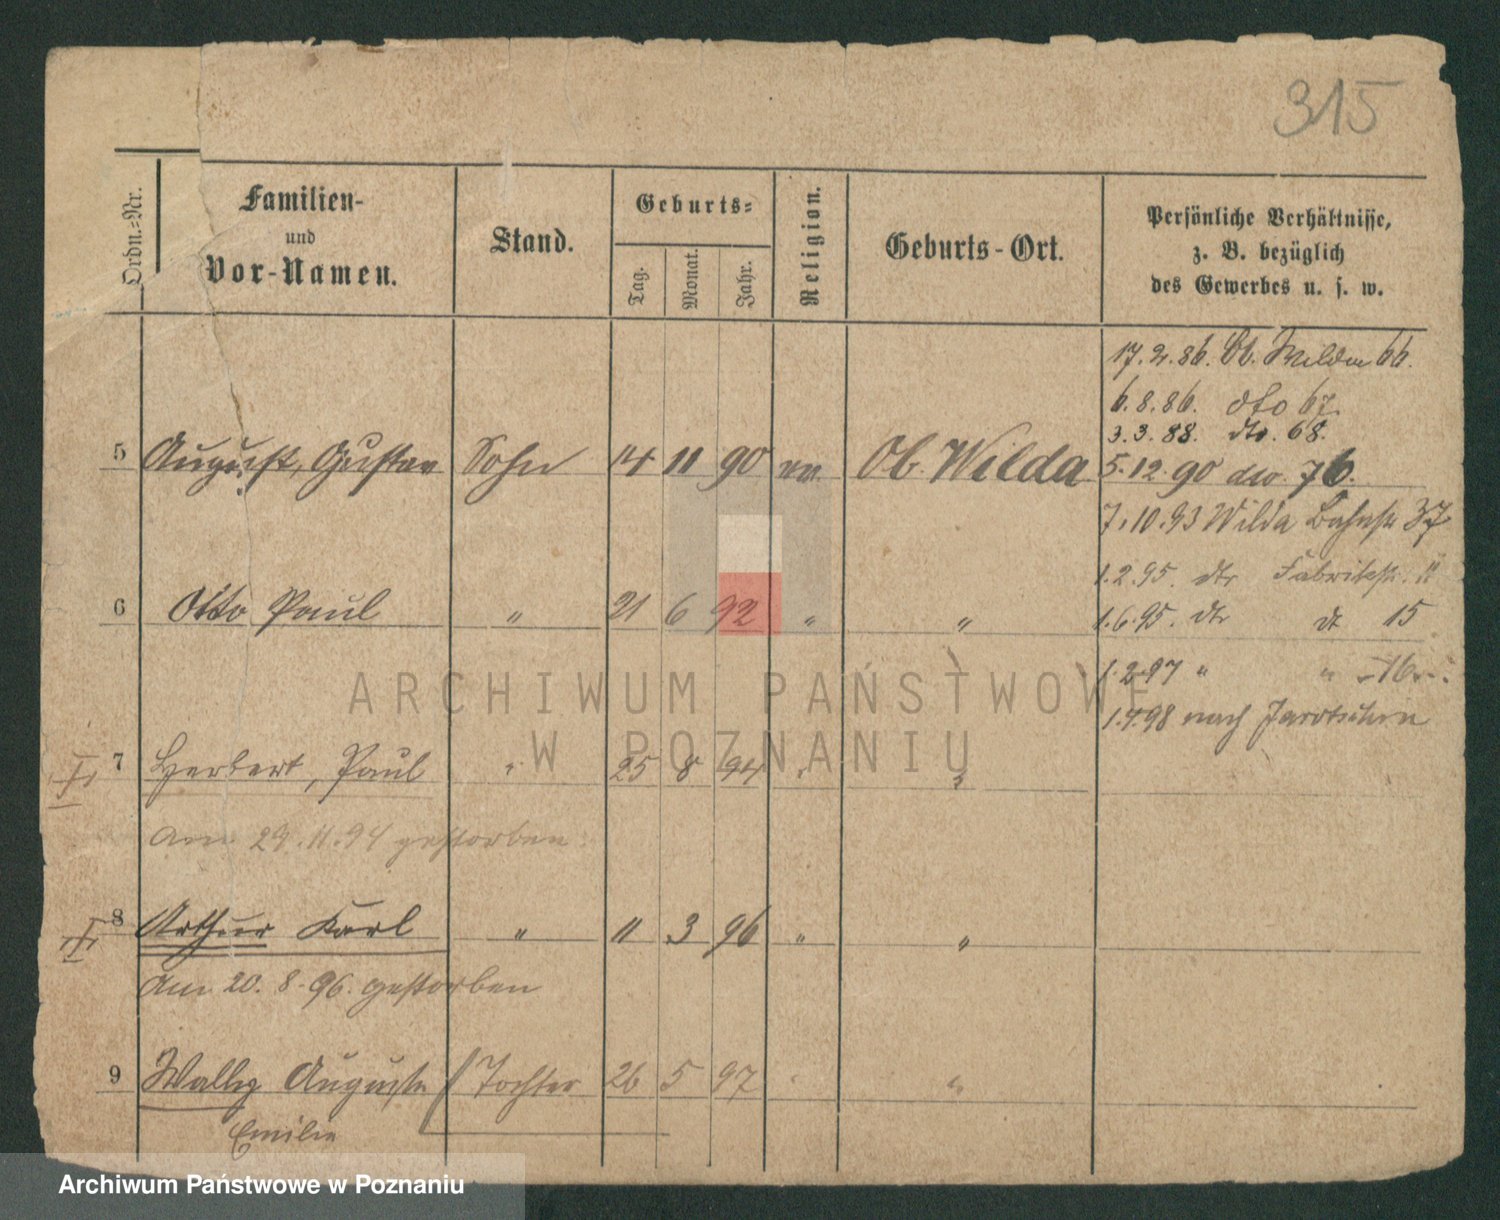 315
Ordn.-Nr.
Familien-
und
Vor-Namen.
Stand.
Geburts-
Tag.
Monat.
Jahr.
Religion.
Geburts-Ort.
Persönliche Verhältnisse,
z. B. bezüglich
des Gewerbes u. s. w.
17.2.86. Ob. Wilda 66.
6.8.86. dto 67.
3.3.88. dto. 68.
5 August, Gustav Sohn 14 11 90 ev. Ob. Wilda 5.12.90 dto. 76.
7.10.93 Wilda Bahnstr 37
1.2.95. dto Fabrikstr. 11
6 Otto Paul " 21 6 92 " " 1.6.95. dto dt 15
1.2.97 " " 16
1.4.98 nach Jarotschin
7 Herbert, Paul " 25 8 94 " "
am 24.11.94 gestorben
8 Arthur Karl " 11 3 96 " "
Am 20.8.96. gestorben
9 Wally Auguste Tochter 26 5 97 " "
Emilie
ARCHIWUM PAŃSTWOWE
W POZNANIU
Archiwum Państwowe w Poznaniu